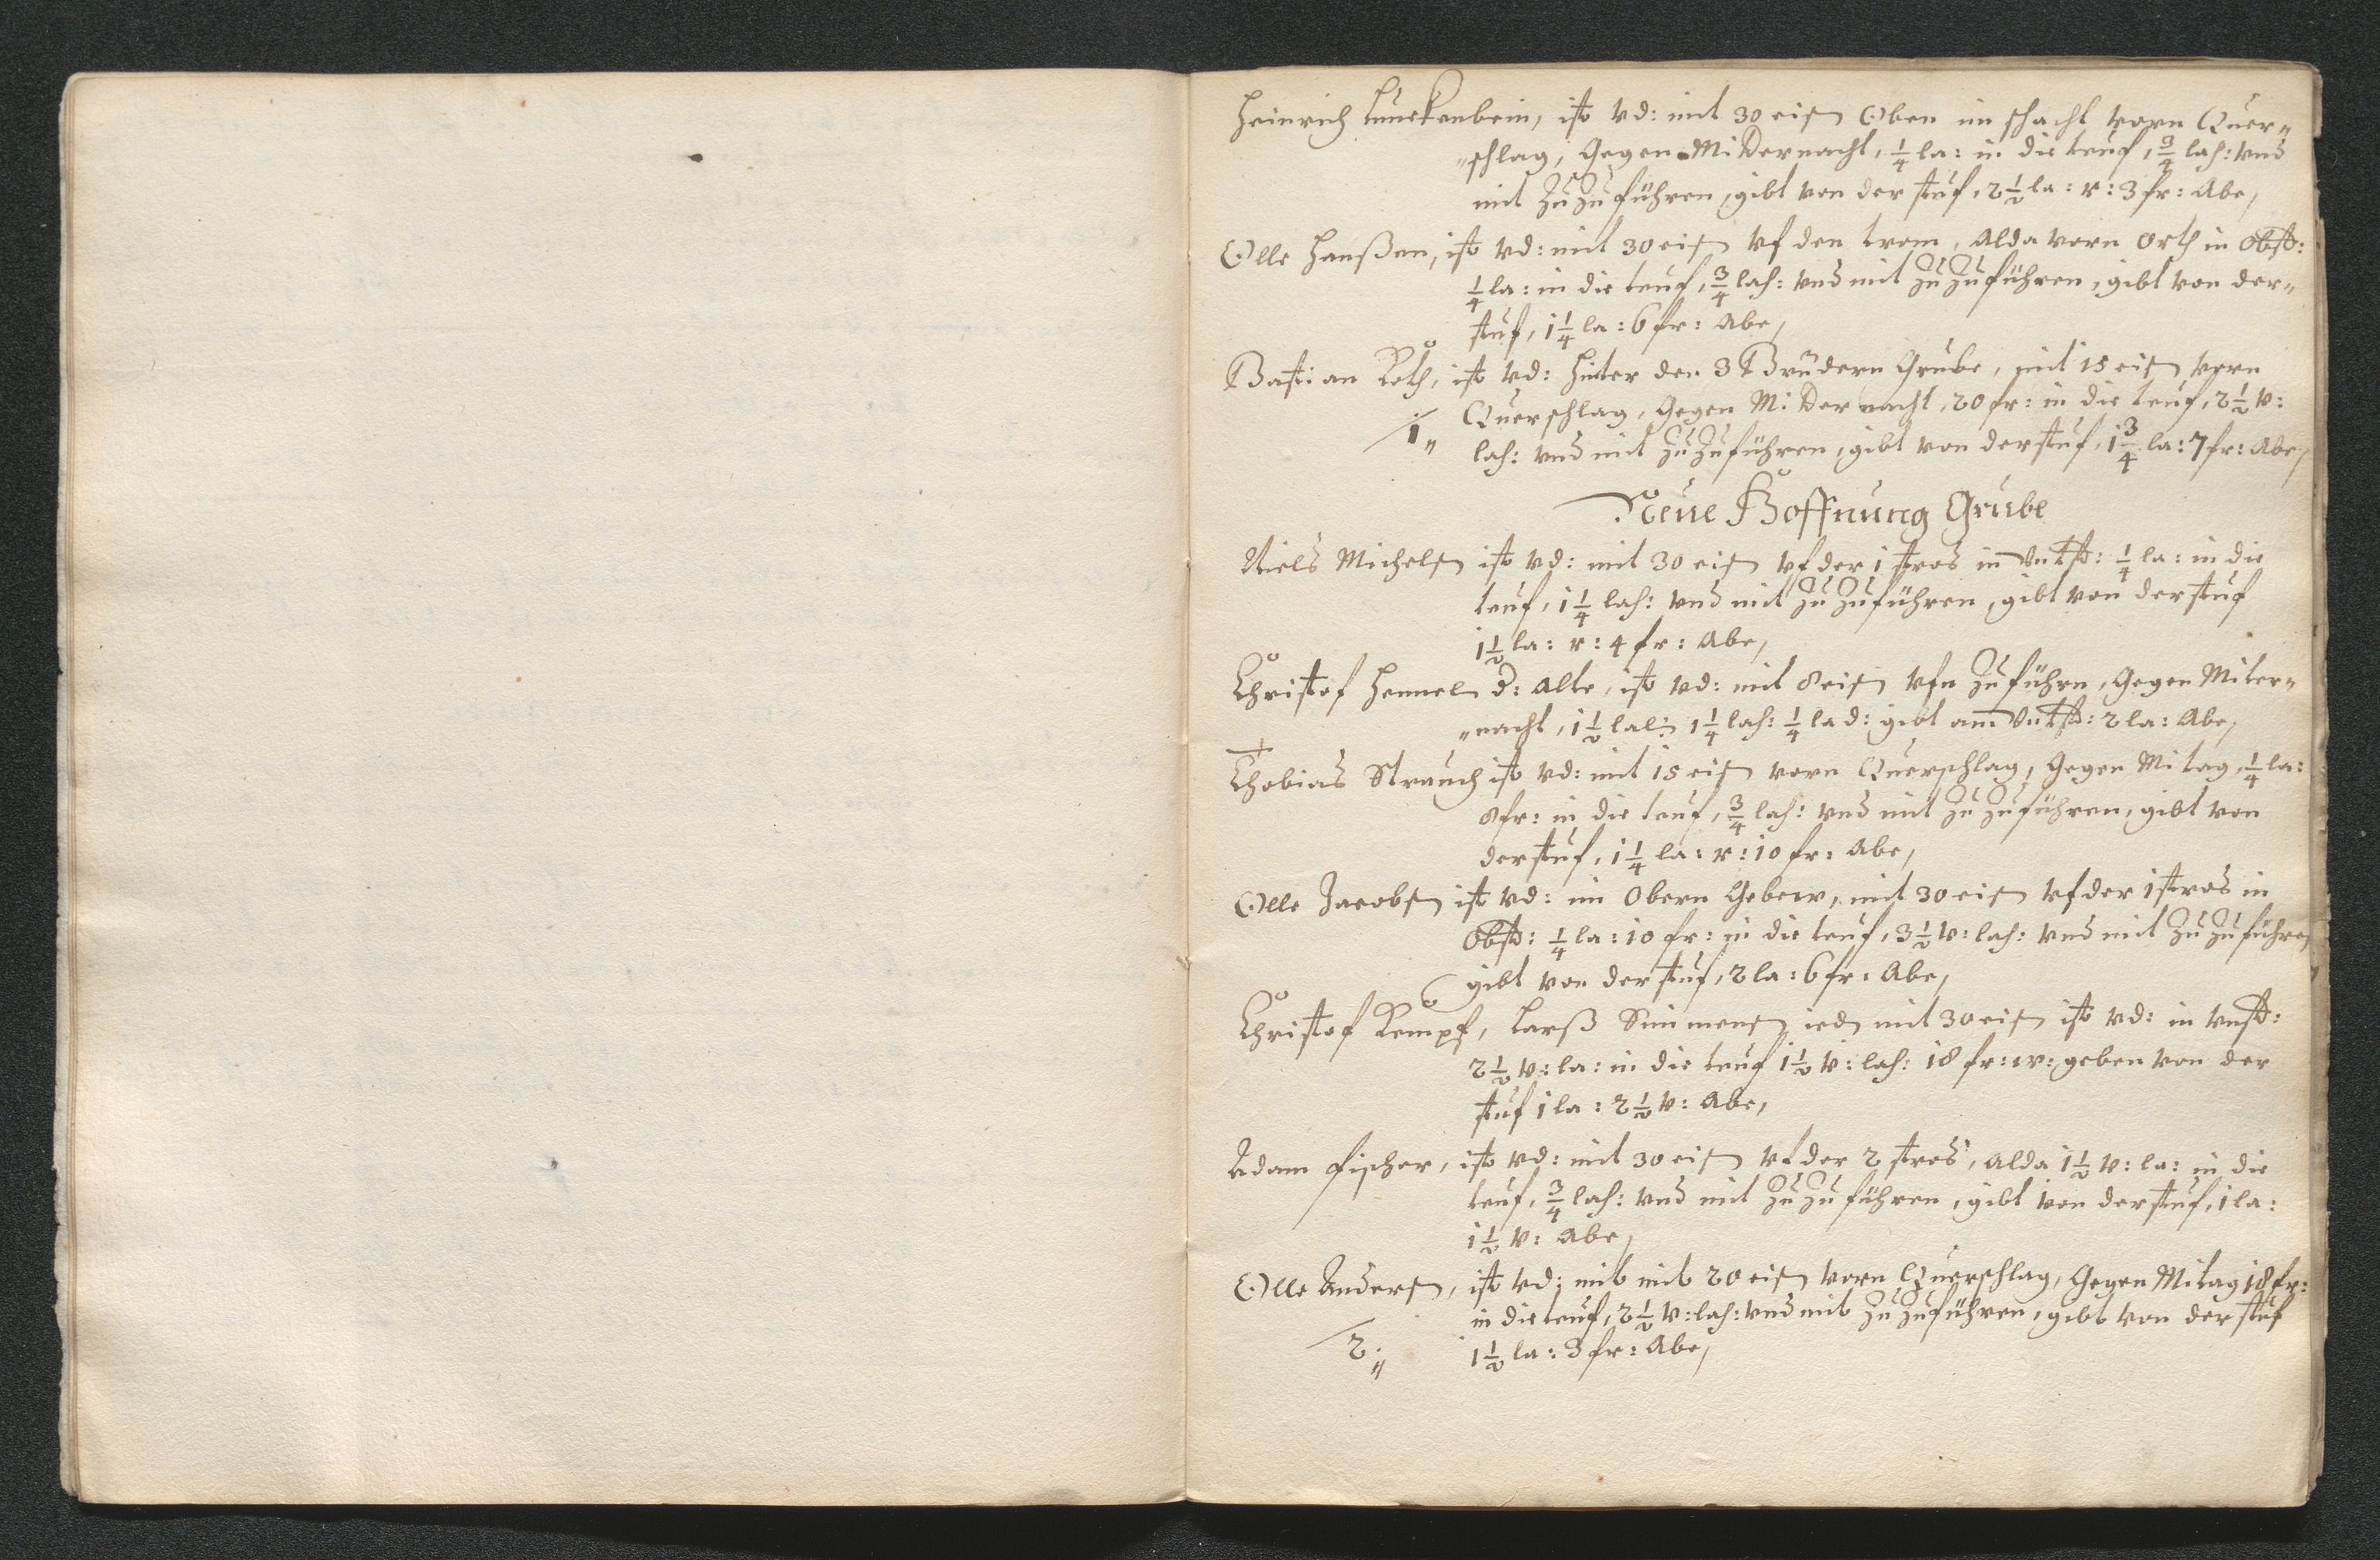 Heinrich Lunckenbein, ist vd: mit 30 eisn Oben im schacht vorn Quer„
„schlag, Gegen Midernacht, 1/4 la: in die teuf, 3/4 lah: vnd
mit Zu Zuführen, gibt von der stuf, 2 1/2 la: r: 3 fr: Abe,
Olle Hanßen, ist vd: mit 30 eisn vf den trom, Alda vorn Orth in Obst:
1/4 la: in die teuf, 3/4 lah: vnd mit Zu Zuführen, gibt von der„
stuf, 1 1/4 la: 6 fr: Abe,
Bastian Roth, ist vd: Hinter den 3 Brüdern Grube, mit 15 eisn vorn
Querschlag, Gegen Midernacht, 20 fr: in die teuf, 2 1/2 v:
1„ lah: vnd mit Zu Zuführen, gibt von der stuf, 1 3/4 la: 7 fr: Abe,
Neue Hoffnung Grube
Niels Michelsn ist vd: mit 30 eisn vf der 1 stros in Vntst: 1/4 la: in die
teuf, 1 1/4 lah: vnd mit Zu Zuführen, gibt von der stuf
1 1/2 la: r: 4 fr: Abe,
Christof Hennel d: Alte, ist vd: mit 8 eisn vfn Zuführn, Gegen Miter„
„nacht, 1 1/2 la l: 1 1/4 lah: 1/4 la d: gibt am Vntst: 2 la: Abe,
Thobias Strauch ist vd: mit 15 eisn vorn Querschlag, Gegen Mitag, 1/4 la:
8 fr: in die teuf, 3/4 lah: vnd mit Zu Zuführen, gibt von
der stuf, 1 1/4 la: r: 10 fr: Abe,
Olle Jacobsn ist vd: im Obern Gebew, mit 30 eisn vf der 1 stros in
Obst: 1/4 la: 10 fr: in die teuf, 3 1/2 v: lah: vnd mit Zu Zuführen
gibt von der stuf, 2 la: 6 fr: Abe,
Christof Kempf, Larß Simmensn ied mit 30 eisn ist vd: in vnst:
2 1/2 v: la: in die teuf 1 1/2 v: lah: 18 fr: w: geben von der
stuf 1 la: 2 1/2 v: Abe,
Adam Fischer, ist vd: mit 30 eisn vf der 2 stros, Alda 1 1/2 v: la: in die
teuf, 3/4 lah: vnd mit Zu Zuführen, gibt von der stuf, 1 la:
1 1/2 v: Abe,
Olle Andersn, ist vd: mit mit 20 eisn vorn Querschlag, Gegen Mitag 18 fr:
in die teuf, 2 1/2 v: lah: vnd mit Zu Zuführen, gibt von der stuf
2„ 1 1/2 la: 3 fr: Abe,